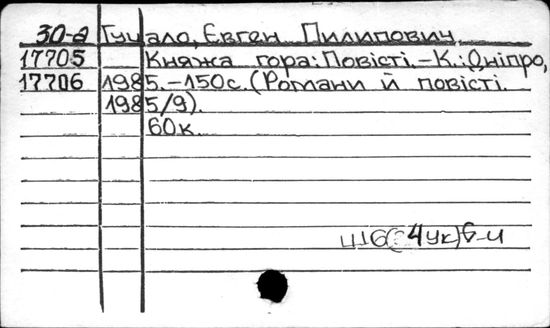 30-а Гуцало, Євген Пилипович
17705 Княжа гора: Повісті. - К.: Дніпро,
17706 1985. - 150с. (Романи й повісті.
1985/9).
60к.